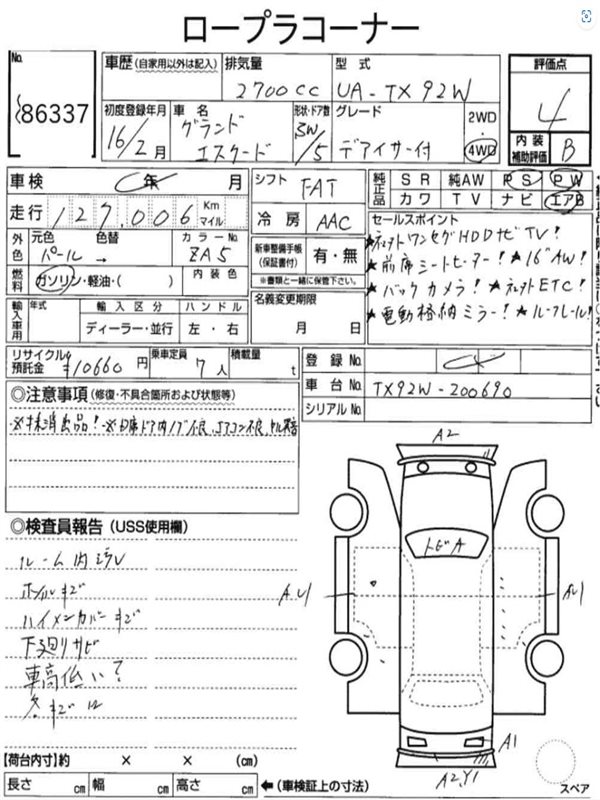 ロープラコーナー
No. 86337
車歴 (自家用以外は記入)
排気量 2700cc
型式 UA-TX92W
評価点 4
内装補助評価 B
初度登録年月 16/2月
車名 グランドエスクード
形状・ドア数 SW/5
グレード デアイサー付
2WD・4WD
車検 年 月
走行 127,006 Km マイル
シフト FAT
冷房 AAC
純正品 SR 純AW PS PW
カワ TV ナビ エアB
外色 元色 パール 色替 → カラーNo. ZA5
燃料 ガソリン・軽油・( ) 内装色
新車整備手帳 (保証書付) 有・無
※書類と一緒に保管下さい。
セールスポイント
★ワンセグHDDナビTV!
★前席シートヒーター! ★16"AW!
★バックカメラ! ★ETC!
★電動格納ミラー! ★ルーフレール!
輸入車用 年式 輸入区分 ハンドル
ディーラー・並行 左・右
名義変更期限 月 日
リサイクル預託金 ¥10660円
乗車定員 7人
積載量 t
登録No.
車台No. TX92W-200690
シリアルNo.
◎注意事項 (修復・不具合箇所および状態等)
◎検査員報告 (USS使用欄)
ルーム内汚レ
キズ
ハイメンカバーキズ
下廻りサビ
車高低い?
各キズ凹
A2
トビA
A凹
A凹
A1
A2,Y1
スペア
【荷台内寸】約 × × (㎝)
長さ ㎝ 幅 ㎝ 高さ ㎝ ←(車検証上の寸法)